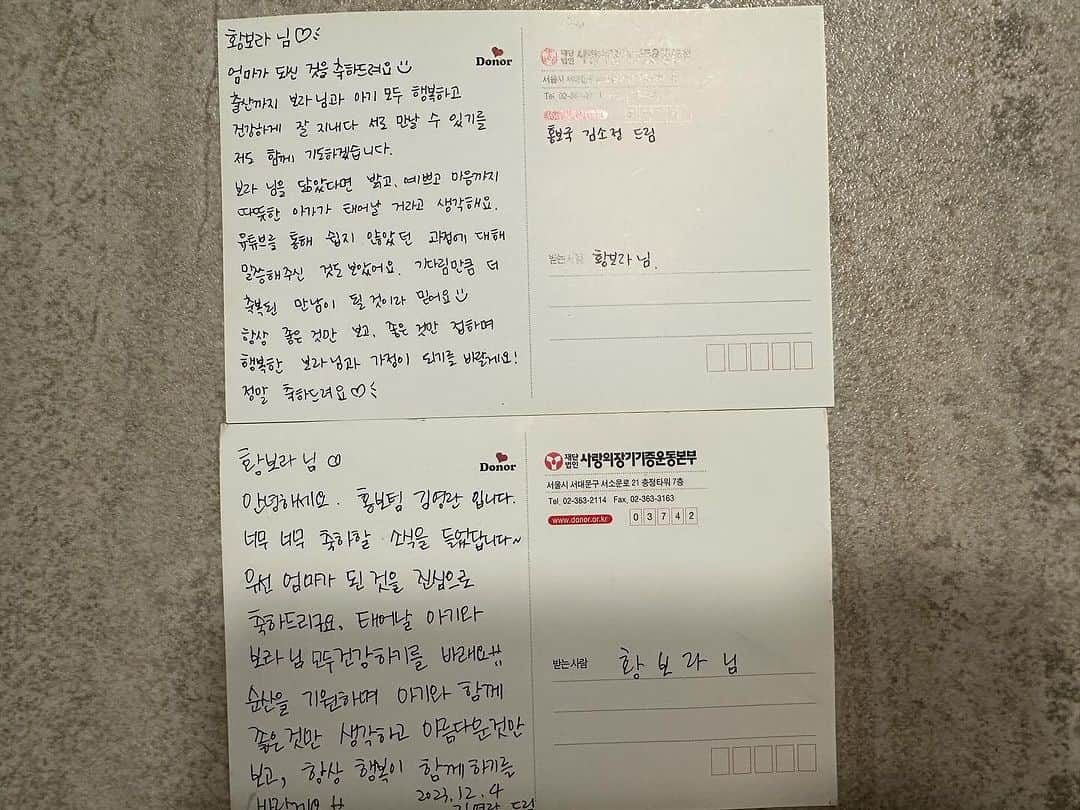 황보라 님♡
엄마가 되신 것을 축하드려요
출산까지 보라님과 아기 모두 행복하고
건강하게 잘 지내다 서로 만날 수 있기를
저도 함께 기도하겠습니다.
보라 님을 닮았다면 밝고, 예쁘고 마음까지
따뜻한 아가가 태어날 거라고 생각해요.
유튜브를 통해 쉽지 않았던 과정에 대해
말씀해주신 것도 보았어요. 기다림만큼 더
축복된 만남이 될 것이라 믿어요
항상 좋은 것만 보고, 좋은 것만 접하며
행복한 보라님과 가정이 되기를 바랄게요!
정말 축하드려요♡
Donor
재단
법인
서울시 서대문구
Tel. 02-36
홍보국 김소정 드림
받는사람 황보라 님.
황보라 님 ♡
안녕하세요. 홍보팀 김영란 입니다.
너무 너무 축하할 소식을 들었답니다~
우선 엄마가 된 것을 진심으로
축하드리구요, 태어날 아기와
보라 님 모두 건강하기를 바래요!!
순산을 기원하며 아기와 함께
좋은것만 생각하고 아름다운것만
보고, 항상 행복이 함께하기를
바랄게요
2023.12.4
김영란 드림
Donor
재단법인 사랑의장기기증운동본부
서울시 서대문구 서소문로 21 충정타워 7층
Tel. 02-363-2114 Fax. 02-363-3163
www.donor.or.kr 0 3 7 4 2
받는사람 황보라님